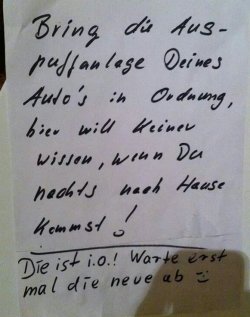 Bring die Aus-
puffanlage Deines
Auto's in Ordnung,
hier will Keiner
wissen, wenn Du
nachts nach Hause
kommst!
Die ist i.O.! Warte erst
mal die neue ab ☺